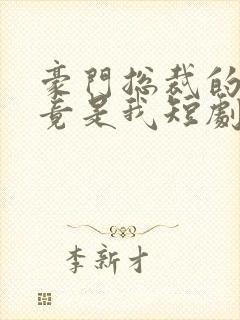 豪門總裁的
竟是我短劇
李新才